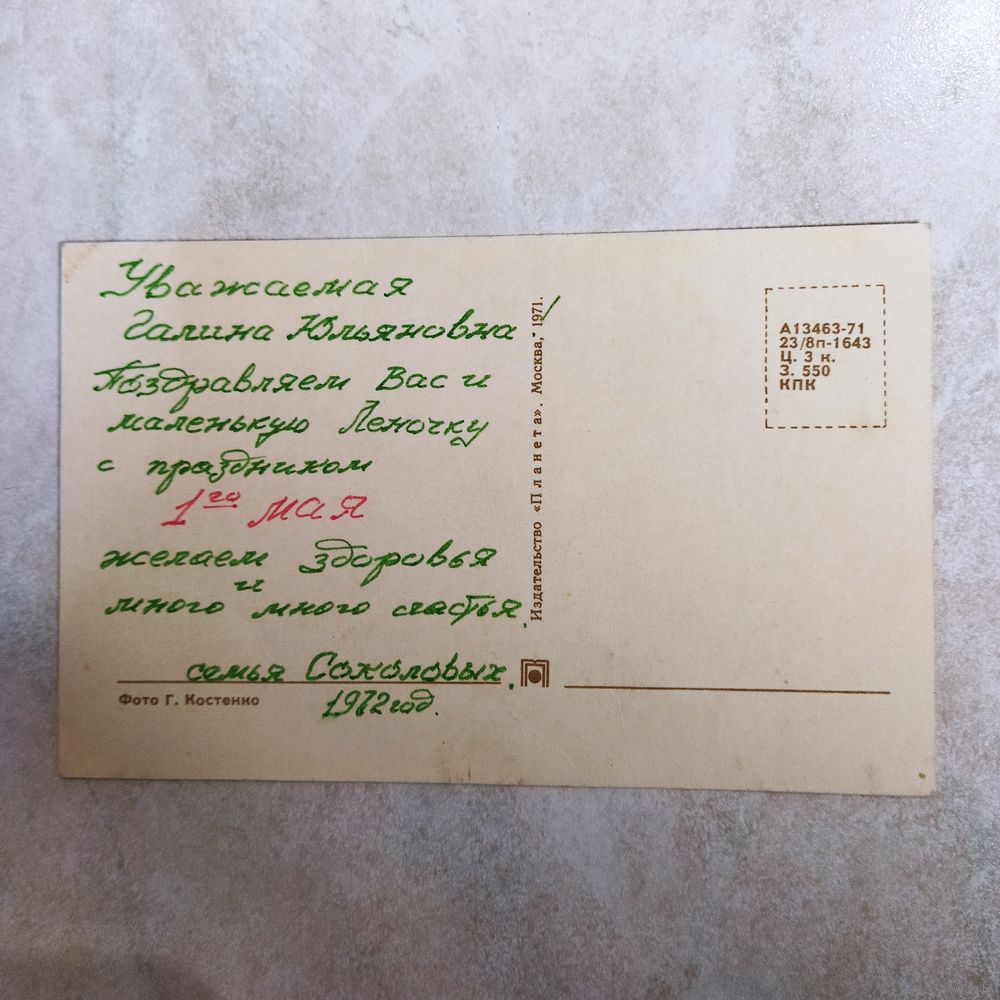 Уважаемая
Галина Юльяновна
Поздравляем Вас и
маленькую Леночку
с праздником
1го мая
желаем здоровья
и
много много счастья.
семья Соколовых.
1972 год.
Фото Г. Костенко
Издательство «Планета». Москва, 1971.
А13463-71
23/8п-1643
Ц. 3 к.
З. 550
КПК